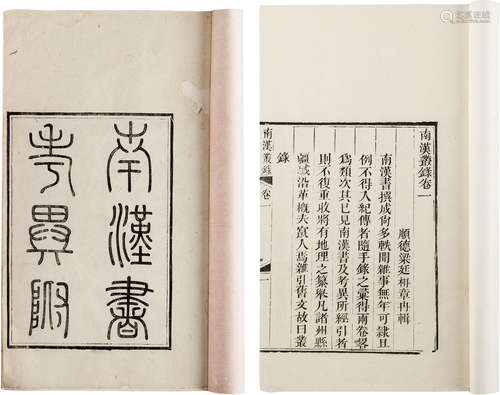 南漢書
考異附
南漢叢錄卷一
順德梁廷枏章冉輯
南漢書撰成尙多軼聞雜事無年可隸且
例不得入紀傳者隨手錄之彙得兩卷畧
爲類次其已見南漢書及考異所經引者
則不復重收將有地理之纂舉凡諸州縣
疆域沿革槪焉雜引舊文故曰叢
錄
南漢叢錄
卷一